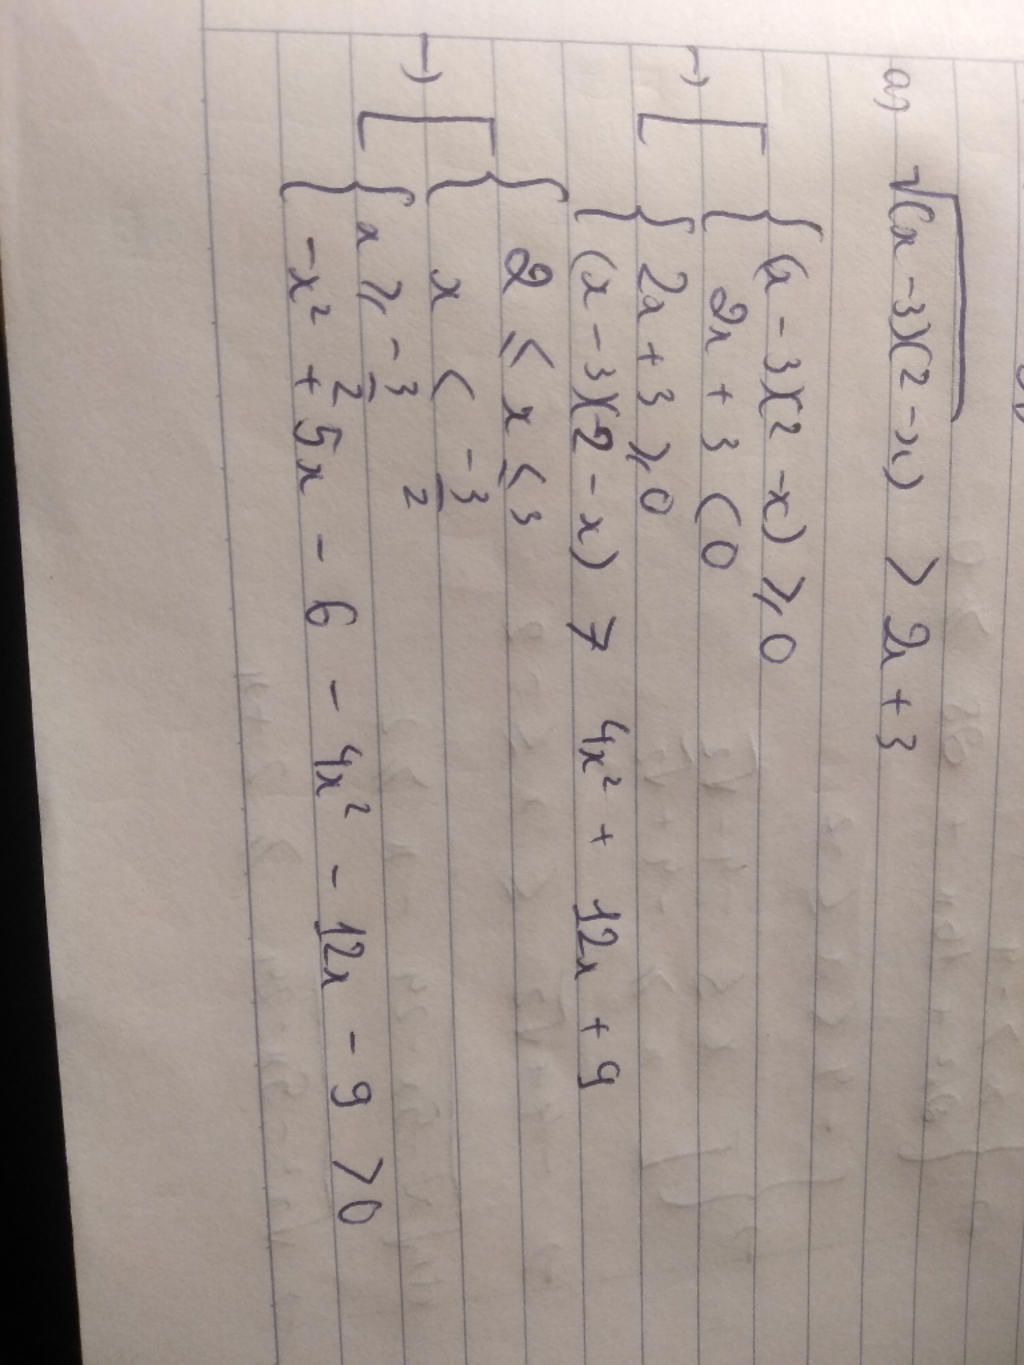 a) √(x - 3)(2 - x) > 2x + 3
→ [ { (x - 3)(2 - x) ⩾ 0
2x + 3 < 0
{ 2x + 3 ⩾ 0
(x - 3)(2 - x) > 4x² + 12x + 9
→ [ { 2 ≤ x ≤ 3
x < -3/2
{ x ⩾ -3/2
-x² + 5x - 6 - 4x² - 12x - 9 > 0